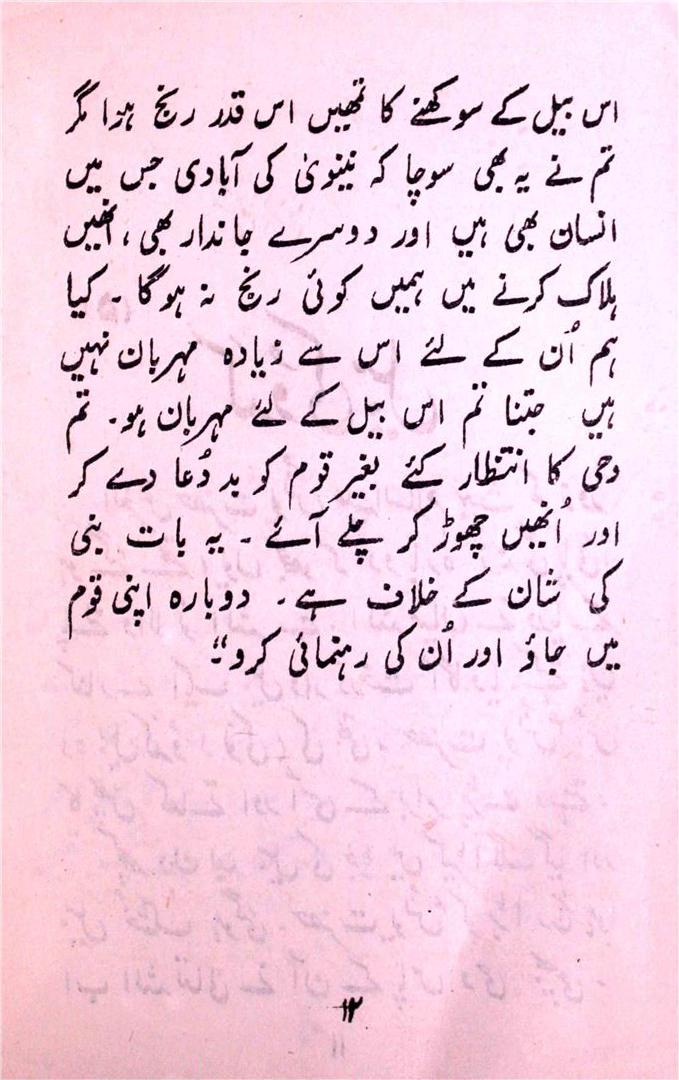 اس بیل کے سوکھنے کا تمھیں اس قدر رنج ہوا مگر
تم نے یہ بھی سوچا کہ نینویٰ کی آبادی جس میں
انسان بھی ہیں اور دوسرے جاندار بھی، انھیں
ہلاک کرنے میں ہمیں کوئی رنج نہ ہوگا ۔ کیا
ہم اُن کے لئے اس سے زیادہ مہربان نہیں
ہیں جتنا تم اس بیل کے لئے مہربان ہو۔ تم
وحی کا انتظار کئے بغیر قوم کو بد دُعا دے کر
اور اُنھیں چھوڑ کر چلے آئے ۔ یہ بات نبی
کی شان کے خلاف ہے ۔ دوبارہ اپنی قوم
میں جاؤ اور اُن کی رہنمائی کرو“۔
۱۲